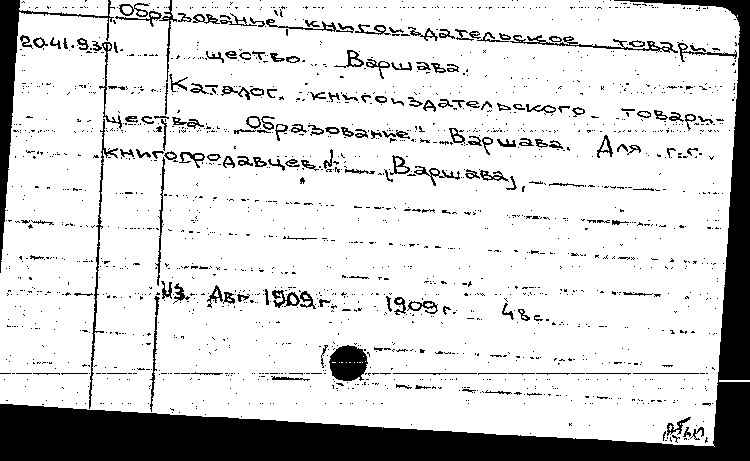 „Образование", книгоиздательское товари-
20.41.9301.
щество. Варшава.
Каталог книгоиздательского товари-
щества „Образование" Варшава. Для г.г.
книгопродавцев. [Варшава],
№3. Авг. 1909 г. 1909 г. 48 с.